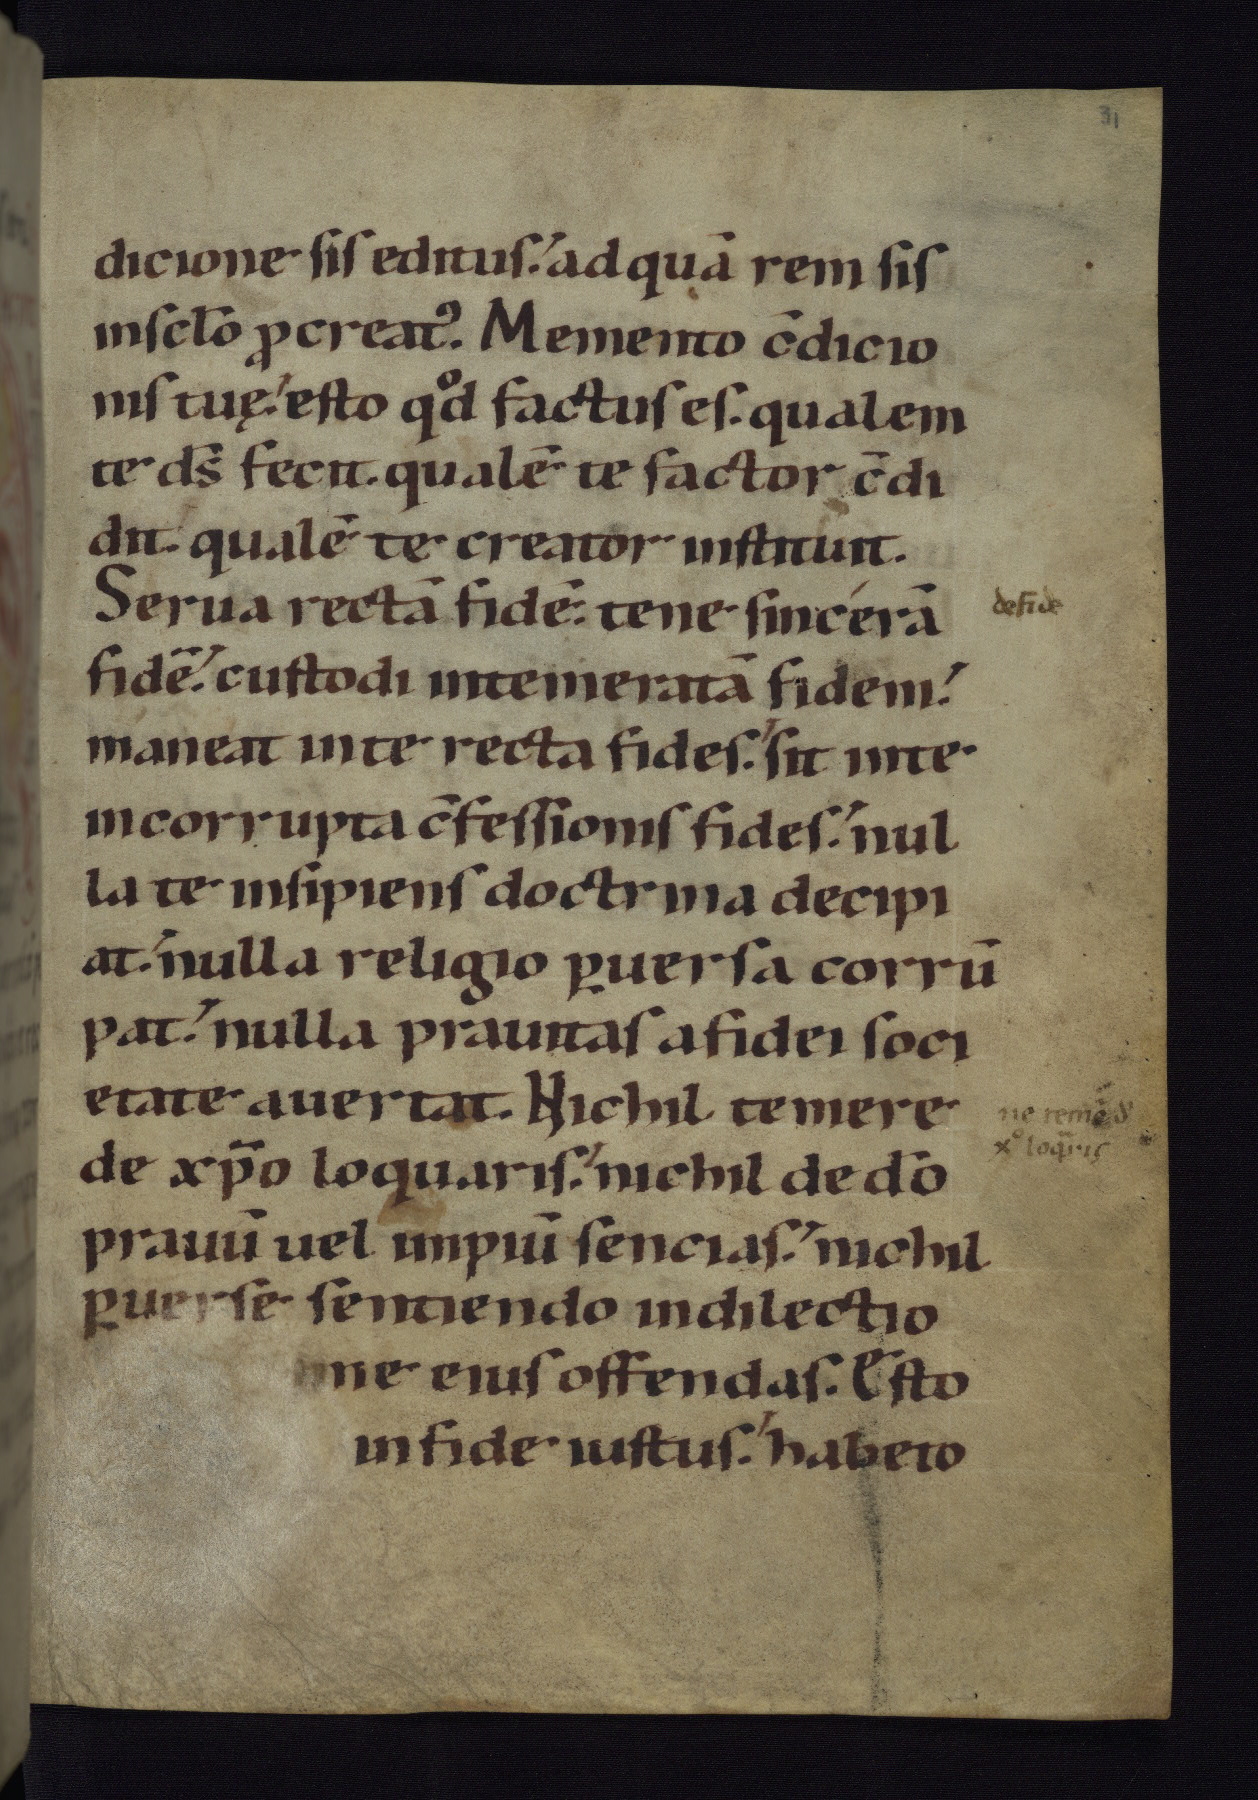 31
dicione sis editus. ad quā rem sis
insclo̅ ꝓcreatꝰ. Memento c̄dicio
nis tuę. esto qͦd factus es. qualem
te ds̄ fecit. qualē te factor c̄di
dit. qualē te creator instituit.
Serua rectā fidē. tene sincerā
de fide
fidē. custodi intemeratā fidem.
maneat in te recta fides. sit in te
incorrupta c̄fessionis fides. nul
la te insipiens doctrina decipi
at. nulla religio ꝑuersa corrū
pat. nulla prauitas a fidei soci
etate auertat. Nichil temere
de xp̄o loquaris. nichil de do̅
ne temē d'
xͦ loq̄ris
prauū uel impiū sencias. nichil
ꝑuerse sentiendo in dilectio
ne eius offendas. Esto
in fide iustus. habeto